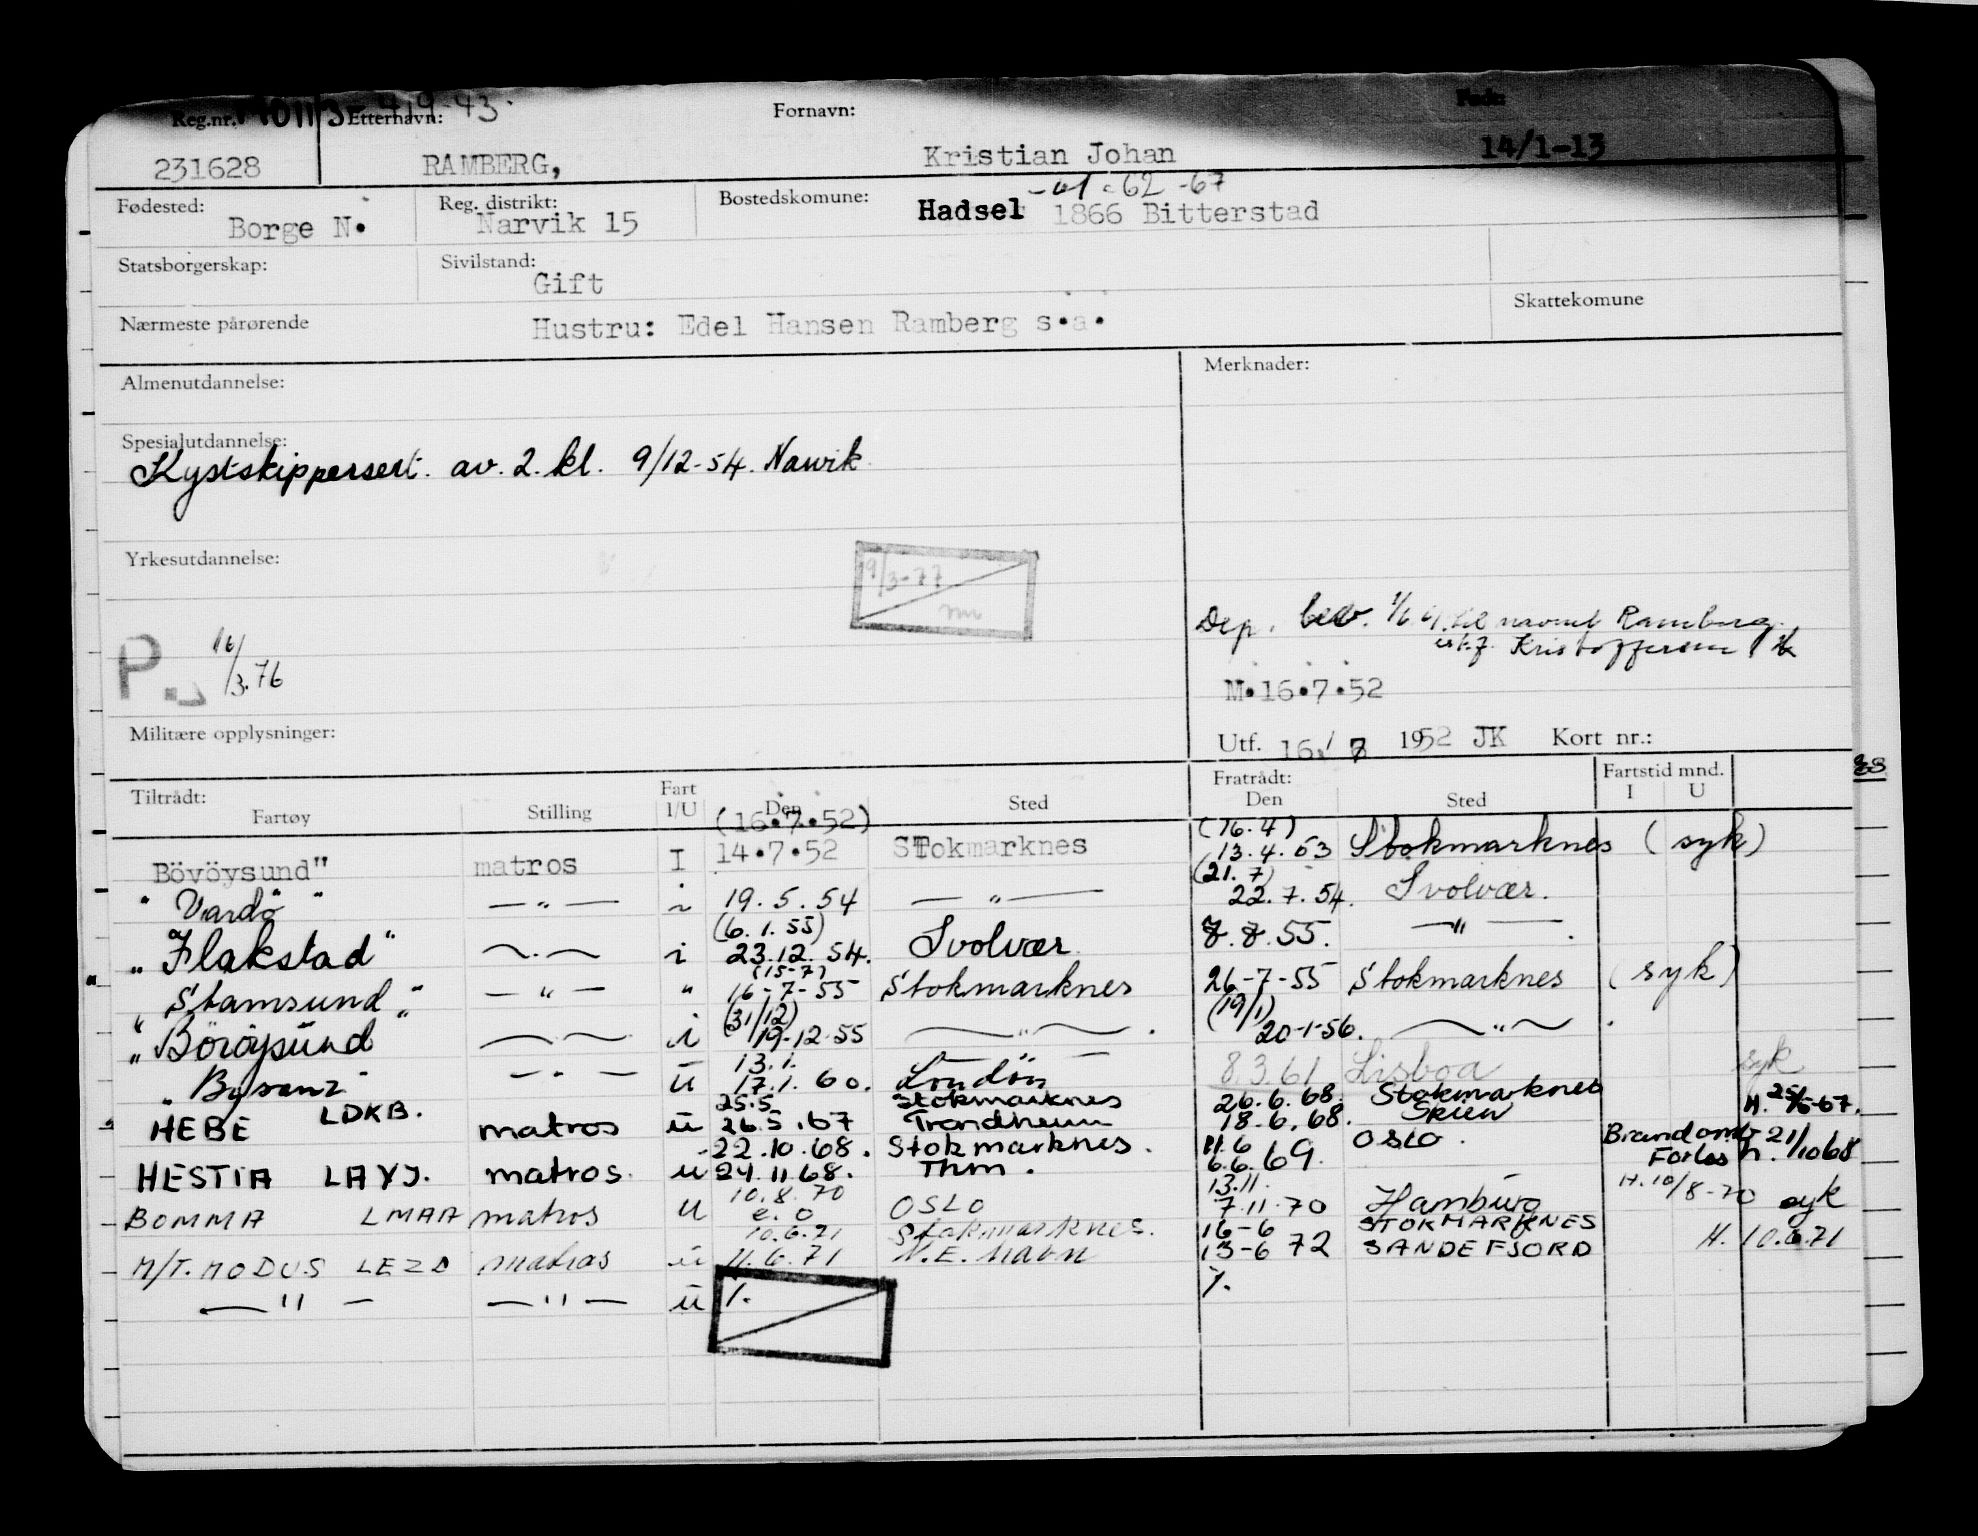 Reg.nr. Etternavn: Fornavn: Født:
231628 RAMBERG, Kristian Johan 14/1-13
-61-62-67
Fødested: Reg. distrikt: Bostedskomune:
Borge N. Narvik 15 Hadsel 1866 Bitterstad
Statsborgerskap: Sivilstand:
Gift
Nærmeste pårørende Hustru: Edel Hansen Ramberg s.a. Skattekomune
Almenutdannelse: Merknader:
Spesialutdannelse:
Kystskippersert. av. 2. kl. 9/12-54. Narvik
Yrkesutdannelse:
19/3-77
Dep. bev. til navnet Ramberg
istf. Kristoffersen
P. 16/3.76
M.16.7.52
Militære opplysninger: Utf. 16/7 1952 JK Kort nr.:
Tiltrådt: Fratrådt: Fartstid mnd.
Fartøy Stilling Fart I/U Den Sted Den Sted I U
(16.7.52) (16.4)
Bövöysund" matros I 14.7.52 STokmarknes 13.4.53 Stokmarknes (syk)
(21.7)
" Vardö " — " — i 19.5.54 — " — 22.7.54. Svolvær.
(6.1.55)
" Flakstad " i 23.12.54. Svolvær 8.8.55. — " —
(15-7)
" Stamsund " — " — " 16-7-55 Stokmarknes 26-7-55 Stokmarknes (syk)
(31/12) (19/1)
" Böröysund i 19-12-55 — " — 20-1-56. — " —
13.1.
" Bysanz " — " — u 17.1.60. London 8.3.61 Lisboa syk
25.5 Stokmarknes 26.6.68 Stokmarknes
HEBE LDKB. matros u 26.5.67 Trondheim 18.6.68. Skien H. 25/5-67.
22.10.68. Stokmarknes. 11.6
HESTIA LAYJ. matros. u 24.11.68. Thm. 6.6.69. OSLO. Brand omb Forlos h. 21/10 68
10.8.70 13.11.
BOMMA LMAA matros U e.o OSLO 7.11.70 Hamburg H.10/8-70 syk
10.6.71 Stokmarknes. 16-6 STOKMARKNES
M/T. MODUS LEZD matros u 11.6.71 N.E. havn 13-6 72 SANDEFJORD H. 10.6.71
— " — — " — u %. %.